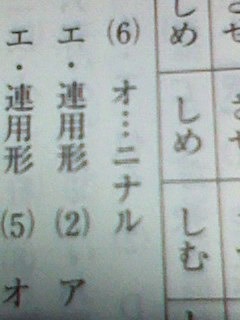 しめ しめ しむ
(6) オ…ニナル
エ・連用形 (2) ア
エ・連用形 (5) オ